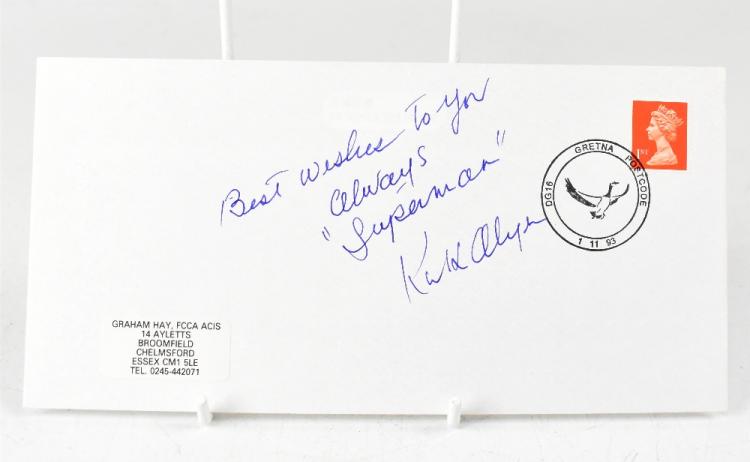 Best Wishes To You
Always
"Superman"
Kirk Alyn
1ST
GRETNA POSTCODE
DG16
1 11 93
GRAHAM HAY, FCCA ACIS
14 AYLETTS
BROOMFIELD
CHELMSFORD
ESSEX CM1 5LE
TEL. 0245-442071